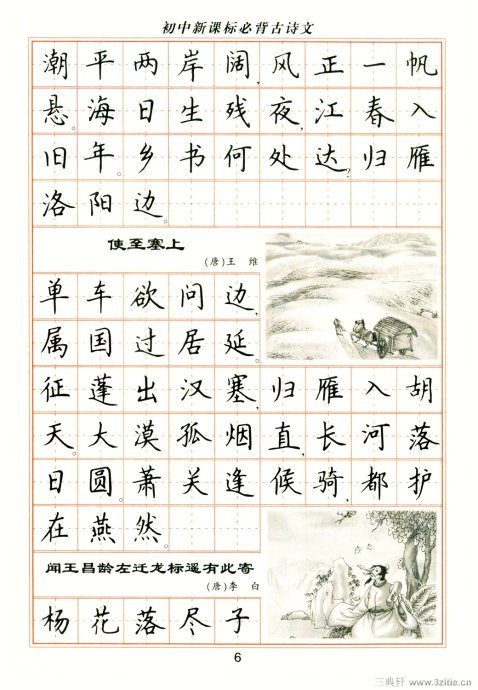 初中新课标必背古诗文
潮平两岸阔,风正一帆
悬。海日生残夜,江春入
旧年。乡书何处达?归雁
洛阳边。
使至塞上
(唐)王 维
单车欲问边,
属国过居延。
征蓬出汉塞,归雁入胡
天。大漠孤烟直,长河落
日圆。萧关逢候骑,都护
在燕然。
闻王昌龄左迁龙标遥有此寄
(唐)李 白
杨花落尽子
6
三典轩 www.3zitie.cn